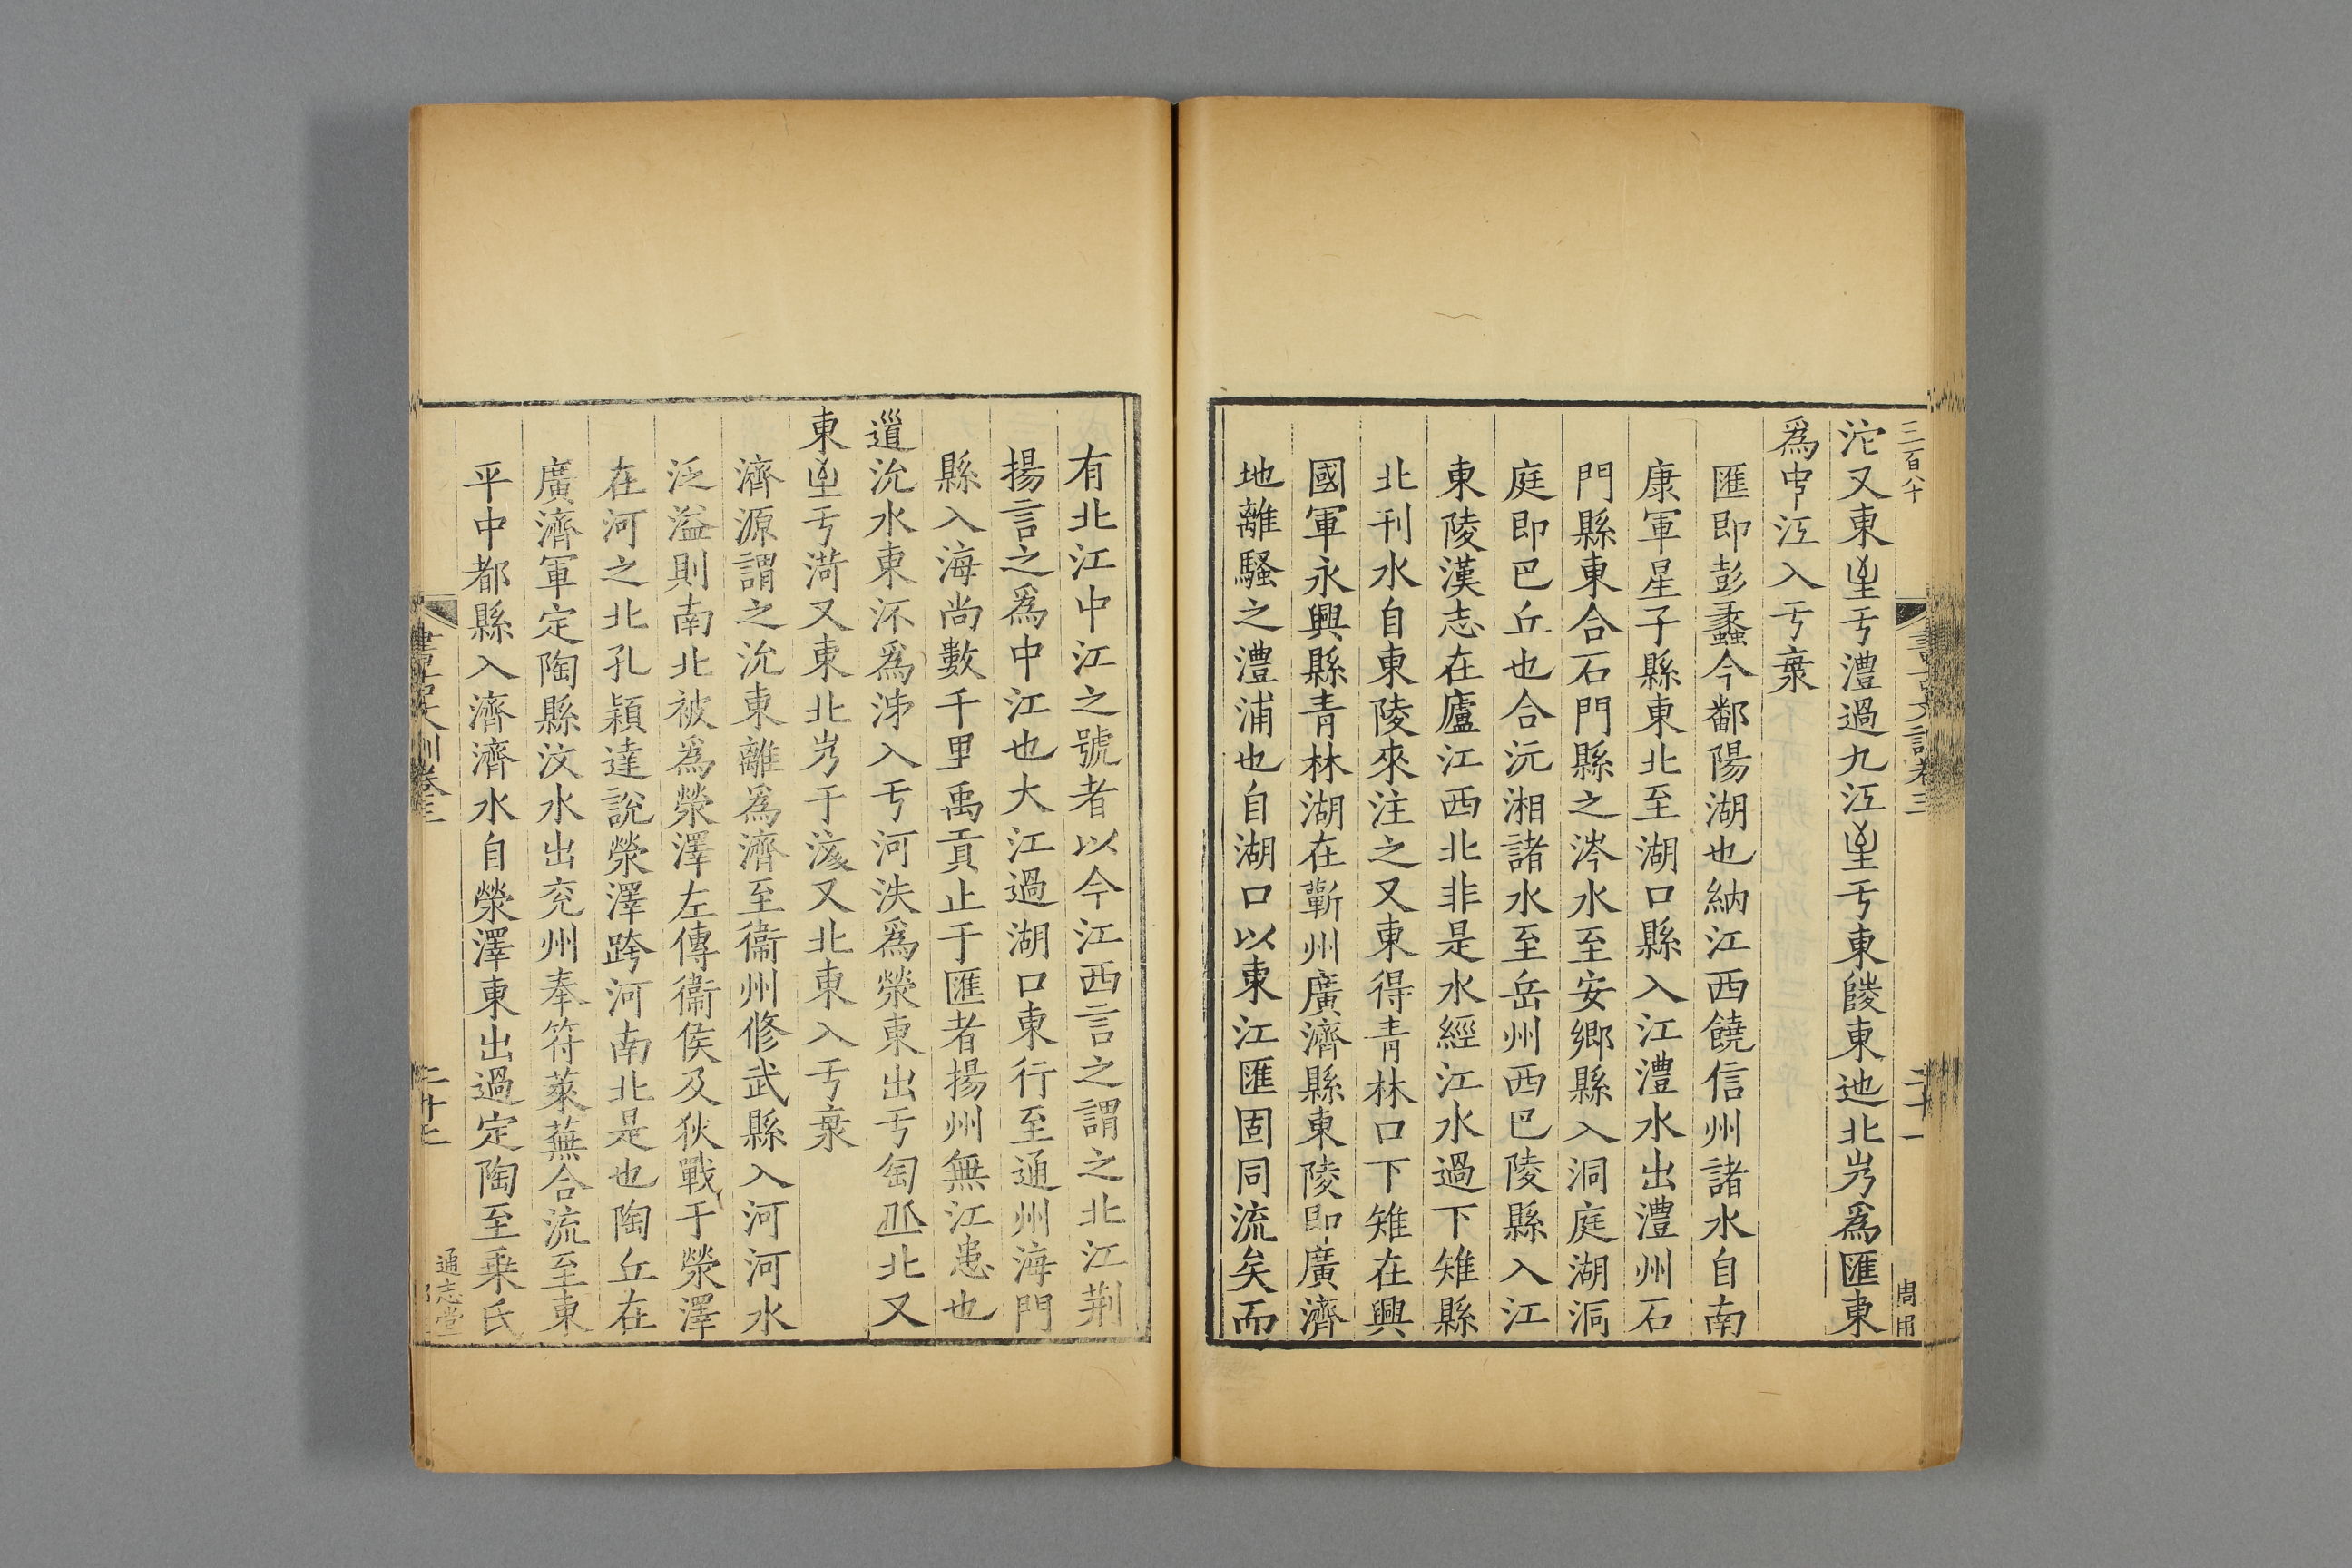 三百八十
沱又東𡴎亐澧過九江𡴎亐東陵東迆北岁爲匯東
爲中江入亐𣴠
匯即彭蠡今鄱陽湖也納江西饒信州諸水自南
康軍星子縣東北至湖口縣入江澧水出澧州石
門縣東合石門縣之涔水至安鄉縣入洞庭湖洞
庭即巴丘也合沅湘諸水至岳州西巴陵縣入江
東陵漢志在廬江西北非是水經江水過下雉縣
北刊水自東陵來注之又東得青林口下雉在興
國軍永興縣青林湖在蘄州廣濟縣東陵即廣濟
地離騷之澧浦也自湖口以東江匯固同流矣而
有北江中江之號者以今江西言之謂之北江荆
揚言之爲中江也大江過湖口東行至通州海門
縣入海尚數千里禹貢止于匯者揚州無江患也
道沇水東㳅爲泲入亐河泆爲滎東出亐匋丠北又
東𡴎亐菏又東北岁于汶又北東入亐𣴠
濟源謂之沇東離爲濟至衞州修武縣入河河水
泛溢則南北被爲滎澤左傳衞侯及狄戰于滎澤
在河之北孔穎達說滎澤跨河南北是也陶丘在
廣濟軍定陶縣汶水出兖州奉符萊蕪合流至東
平中都縣入濟濟水自滎澤東出過定陶至乗氏
通志堂